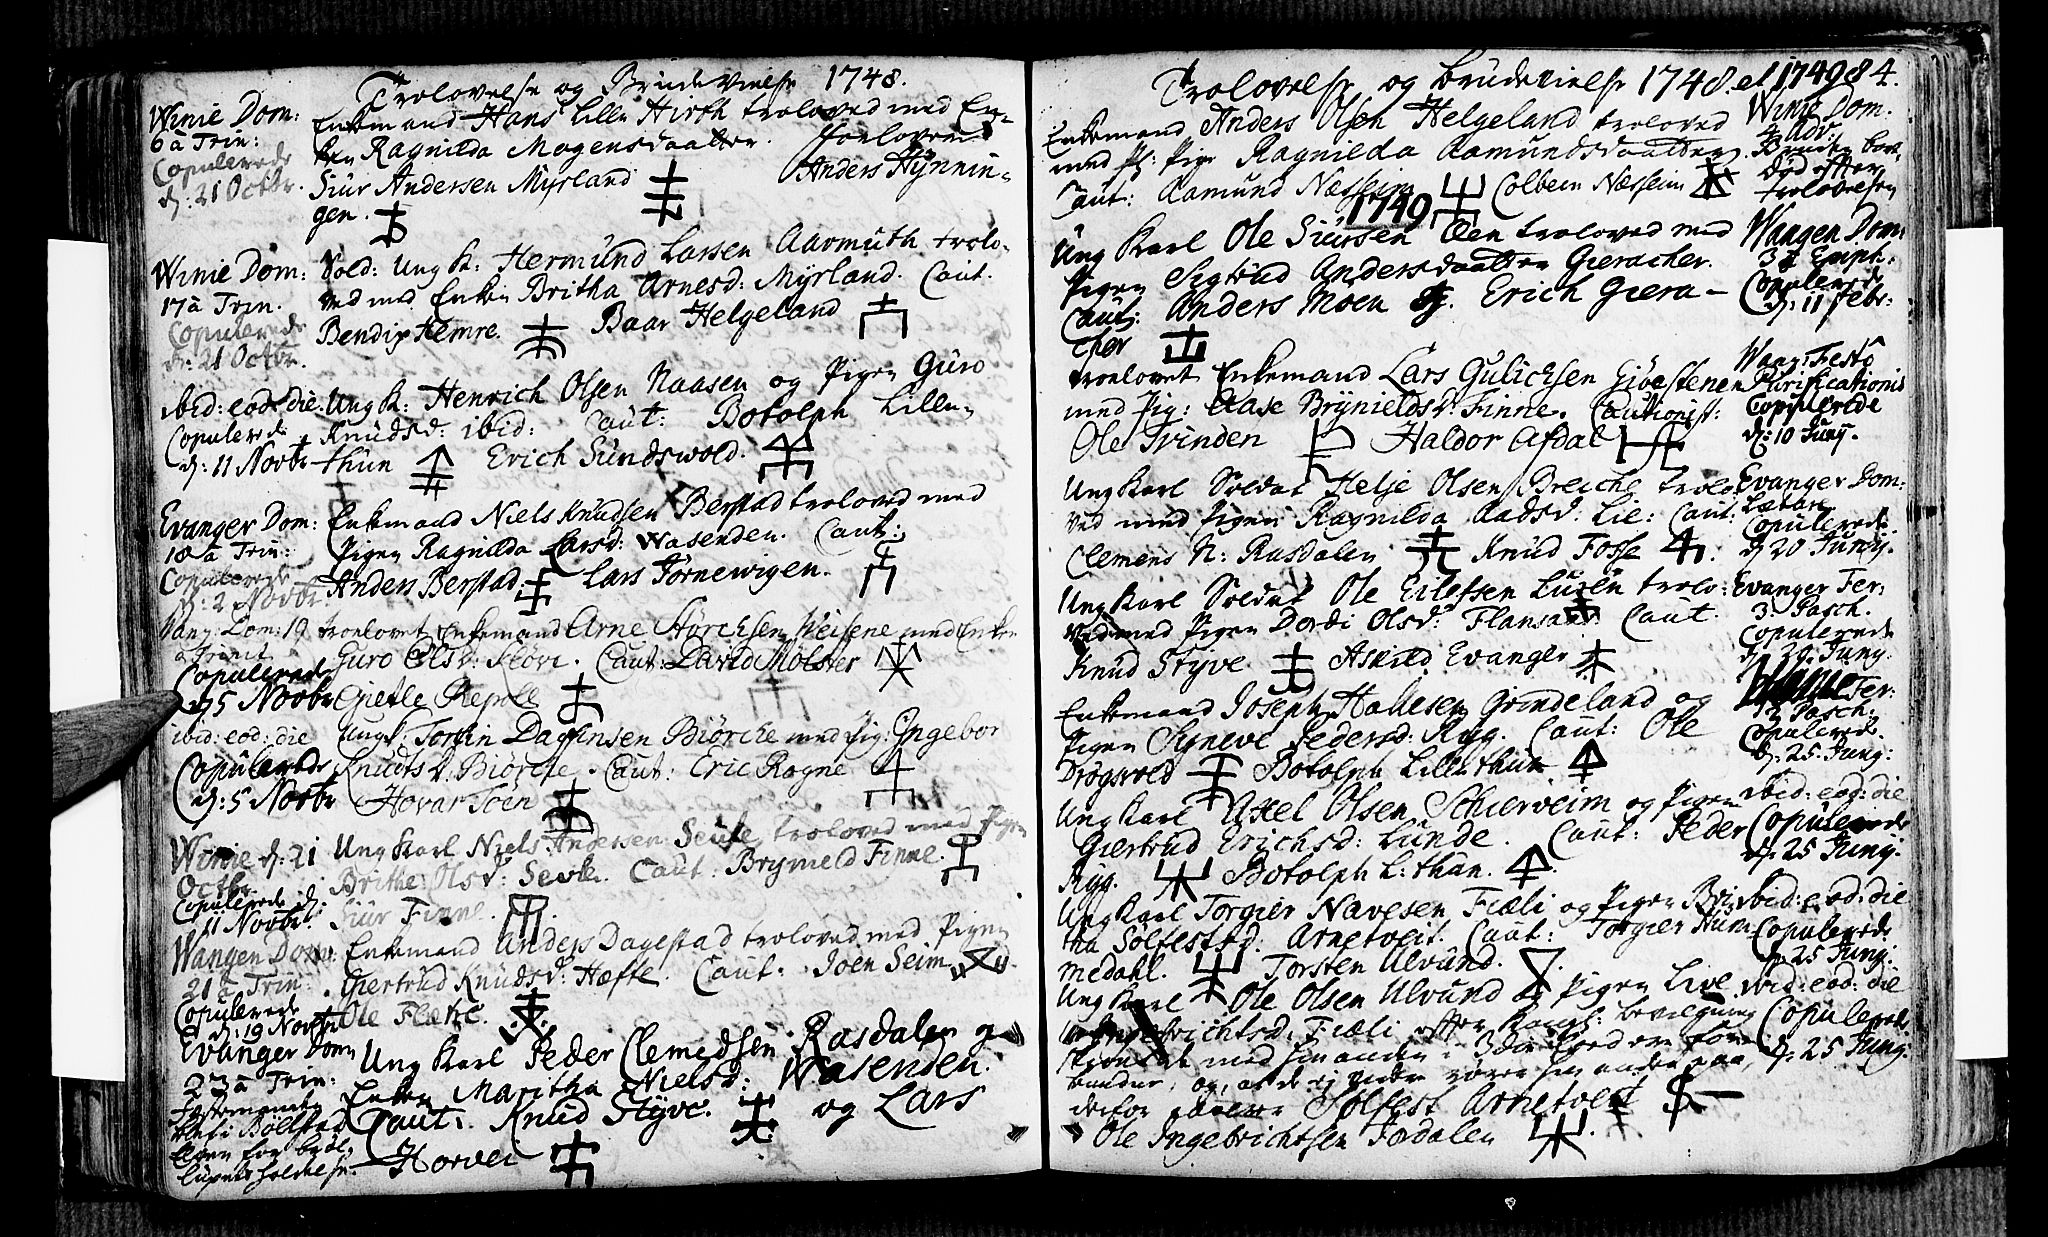 Trolovelse og Brude Vielse 1748.
Winie Dom:
6 à Trin:
Copulerede
d: 21 Octbr.
Enkemand Hans Lille Hirth troloved med En-
ken Ragnilda Mogensdaatter. Forlovere
Siur Andersen Myrland Anders Hynnin-
gen.
Winie Dom:
17 à Trin.
Copulerede
d: 21 Octbr.
Sold: Ung K: Hermund Larsen Aarmuth trolo-
ved med Enken Britha Arnesd: Myrland. Caut.
Bendix Hemre. Baar Helgeland
ibid: eod: die.
Copulerede
d: 11 Novbr
Ung K: Henrich Olsen Naasen og Pigen Guro
Knudsd: ibid: Caut: Botolph Lille-
thun Erich Sundswold.
Evanger Dom:
18 à Trin:
Copulerede
d: 2 Novbr.
Enkemand Niels Knudsen Berstad troloved med
Pigen Ragnilda Larsd: Wasenden. Caut:
Anders Berstad. Lars Fornewigen.
Vang: Dom: 19
à Trinit
Copulerede
d: 5 Novbr
troelovet Enkemand Arne Styrchsen Weisene med Enken
Guro Olsd: Kløve. Caut: David Mølster
Gietle Repoll
ibid: eod: die
Copulerede
d: 5 Novbr
Ung K. Torfin Dagfinsen Biørche med Pig: Ingebor
Knudsd: Biørche. Caut: Eric Rogne
Hovar Toen
Winie d: 21
Octbr.
Copulerede d:
11 Novbr.
Ung Karl Niels Andersen Seufle troloved med Pigen
Brithe Olsd: Seufle. Caut: Brynield Finne.
Siur Finne.
Wangen Dom:
21 à Trin:
Copulerede
d: 19 Novbr
Enkemand Anders Dagestad troloved med Pigen
Giertrud Knudsd: Hæfte. Caut: Joen Seim
Ole Flæke.
Evanger Dom
23 à Trin:
Ung Karl Peder Clemedsen Rasdalen og
Enken Maritha Nielsd: Wasenden.
Caut: Knud Styve. og Lars
Horvei
Trolovelse og Brudevielse 1748 et 1749 84.
Enkemand Anders Olsen Helgeland troloved
med Pigen Ragnilda Aamundsdaatter
Caut: Aamund Næsheim Colbein Næsheim
Winie Dom.
4 Adv.
Bruden bort-
død efter
trolovelsen
1749
Ung Karl Ole Siursen Øen troloved med
Pigen Sigtrud Andersdaatter Gieracher.
Caut: Anders Moen og Erich Giera-
cher
Wangen Dom:
3 Epiph:
Copulerede
d: 11 Febr:
troelovet Enkemand Lars Gulichsen Giøestenen
med Pig: Aase Brynieldsd: Finne. Cautionist:
Ole Tvinden Haldor Afdal
Wang: Festo
Purificationis
Copulerede
d: 10 Junij.
Ung Karl Soldat Helje Olsen Breiche trolo-
ved med Pigen Ragnilda Aadsd: Lie: Caut:
Clemens N: Rasdalen Knud Fosse
Evanger Dom:
Lætare
Copulerede
d 20 Junij.
Ung Karl Soldat Ole Eilefsen Lureen trolo-
ved med Pigen Dordi Olsd: Flansaas. Caut.
Knud Styve Askild Evanger
Evanger Fer:
3. Pasch.
Copulerede
d 20 Junj.
Enkemand Joseph Hallesen Grindeland og
Pigen Syneve Pedersd: Ryg. Caut: Ole
Drøgsvold Botolph Lillethun
Winie Fer:
Pasch.
Copulerede
d. 25. Junj:
Ung Karl Axel Olsen Schierveim og Pigen
Giertrud Erichsd: Lunde. Caut: Peder
Ryg. Botolph L: thun.
ibid: eod: die
Copulerede
d. 25 Junij.
Ung Karl Torgier Navesen Fiæli og Pigen Bri-
tha Sølfestsd: Arnetveit. Caut: Torgier Hum-
medahl. Torsten Ulvund.
ibid: eod: die
Copulerede
d. 25 Junj:
Ung Karl Ole Olsen Ulvund og Pigen Live
Ingebrichtsd: Fiæli efter Kongl: bevilgning
derfor Sølfest Arnetveit
Ole Ingebrichtsen Fordalen
ibid: eod: die
Copulerede
d. 25 Junj: